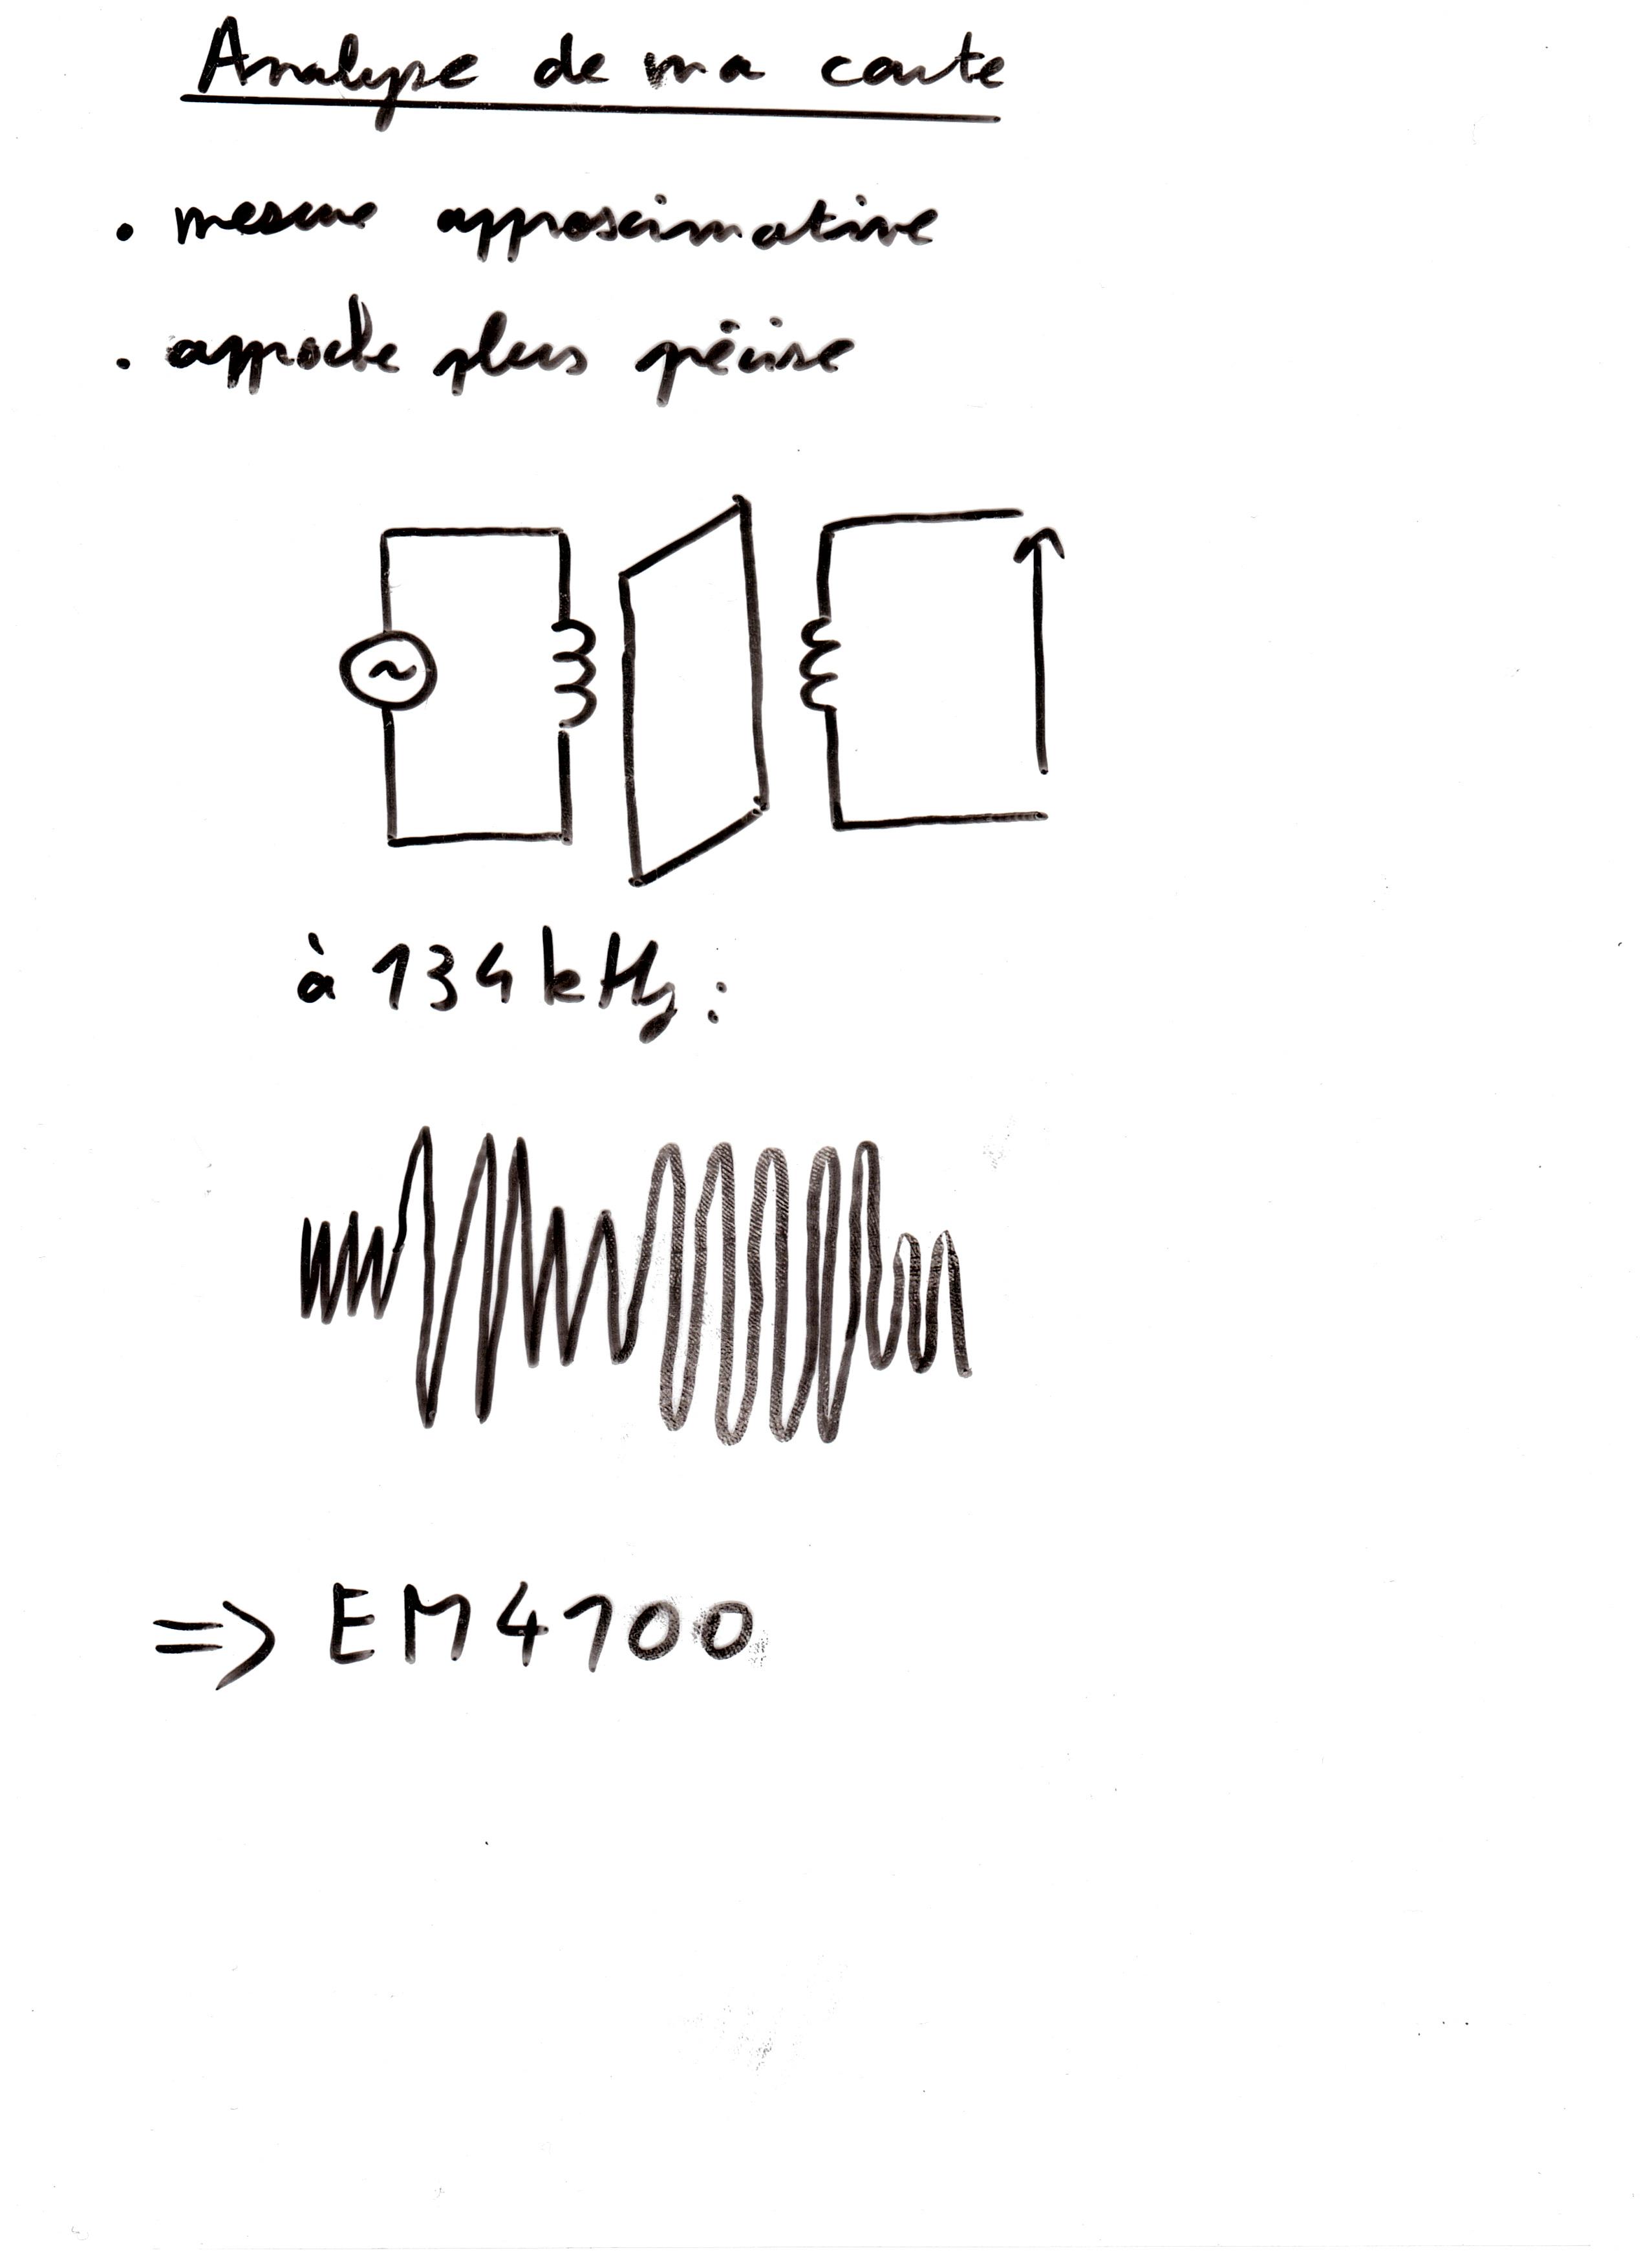 Analyse de ma carte
• mesure approximative
• approche plus précise
~
à 134 kHz :
=> EM4100